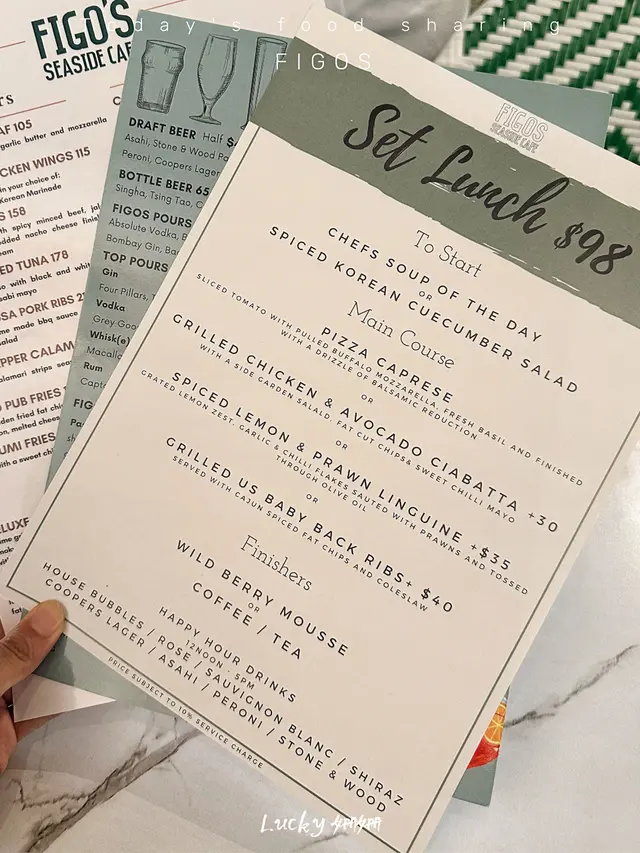 day's food sharing
FIGOS
FIGO'S
SEASIDE CAFE
AF 105
garlic butter and mozzarella
CKEN WINGS 115
in your choice of:
Korean Marinade
S 158
th spicy minced beef,
dded nacho cheese
ED TUNA 178
o with black and
sabi mayo
SA PORK RIBS
me made bbq sauce
salad
EPPER CALAM
alamari strips
PUB FRIES
den fried fat
n, melted chees
UMI FRIES
with a sweet
DELUXE
DRAFT BEER Half
Asahi, Stone & Wood
Peroni, Coopers Lager
BOTTLE BEER 65
Singha, Tsing Tao,
FIGOS POURS
Absolute Vodka,
Bombay Gin,
TOP POURS
Gin
Four Pillars,
Vodka
Grey Goo
Whisk(e)
Macall
Rum
Capt
FIGOS
SEASIDE CAFE
Set Lunch $98
To Start
CHEFS SOUP OF THE DAY
OR
SPICED KOREAN CUECUMBER SALAD
Main Course
PIZZA CAPRESE
SLICED TOMATO WITH PULLED BUFFALO MOZZARELLA, FRESH BASIL AND FINISHED
WITH A DRIZZLE OF BALSAMIC REDUCTION
OR
GRILLED CHICKEN & AVOCADO CIABATTA +30
WITH A SIDE GARDEN SALALD, FAT CUT CHIPS& SWEET CHILLI MAYO
OR
SPICED LEMON & PRAWN LINGUINE +$35
GRATED LEMON ZEST, GARLIC & CHILLI FLAKES SAUTED WITH PRAWNS AND TOSSED
THROUGH OLIVE OIL
OR
GRILLED US BABY BACK RIBS+ $40
SERVED WITH CAJUN SPICED FAT CHIPS AND COLESLAW
Finishers
WILD BERRY MOUSSE
OR
COFFEE / TEA
HAPPY HOUR DRINKS
12NOON - 5PM
HOUSE BUBBLES / ROSE / SAUVIGNON BLANC / SHIRAZ
COOPERS LAGER / ASAHI / PERONI / STONE & WOOD
PRICE SUBJECT TO 10% SERVICE CHARGE
Lucky